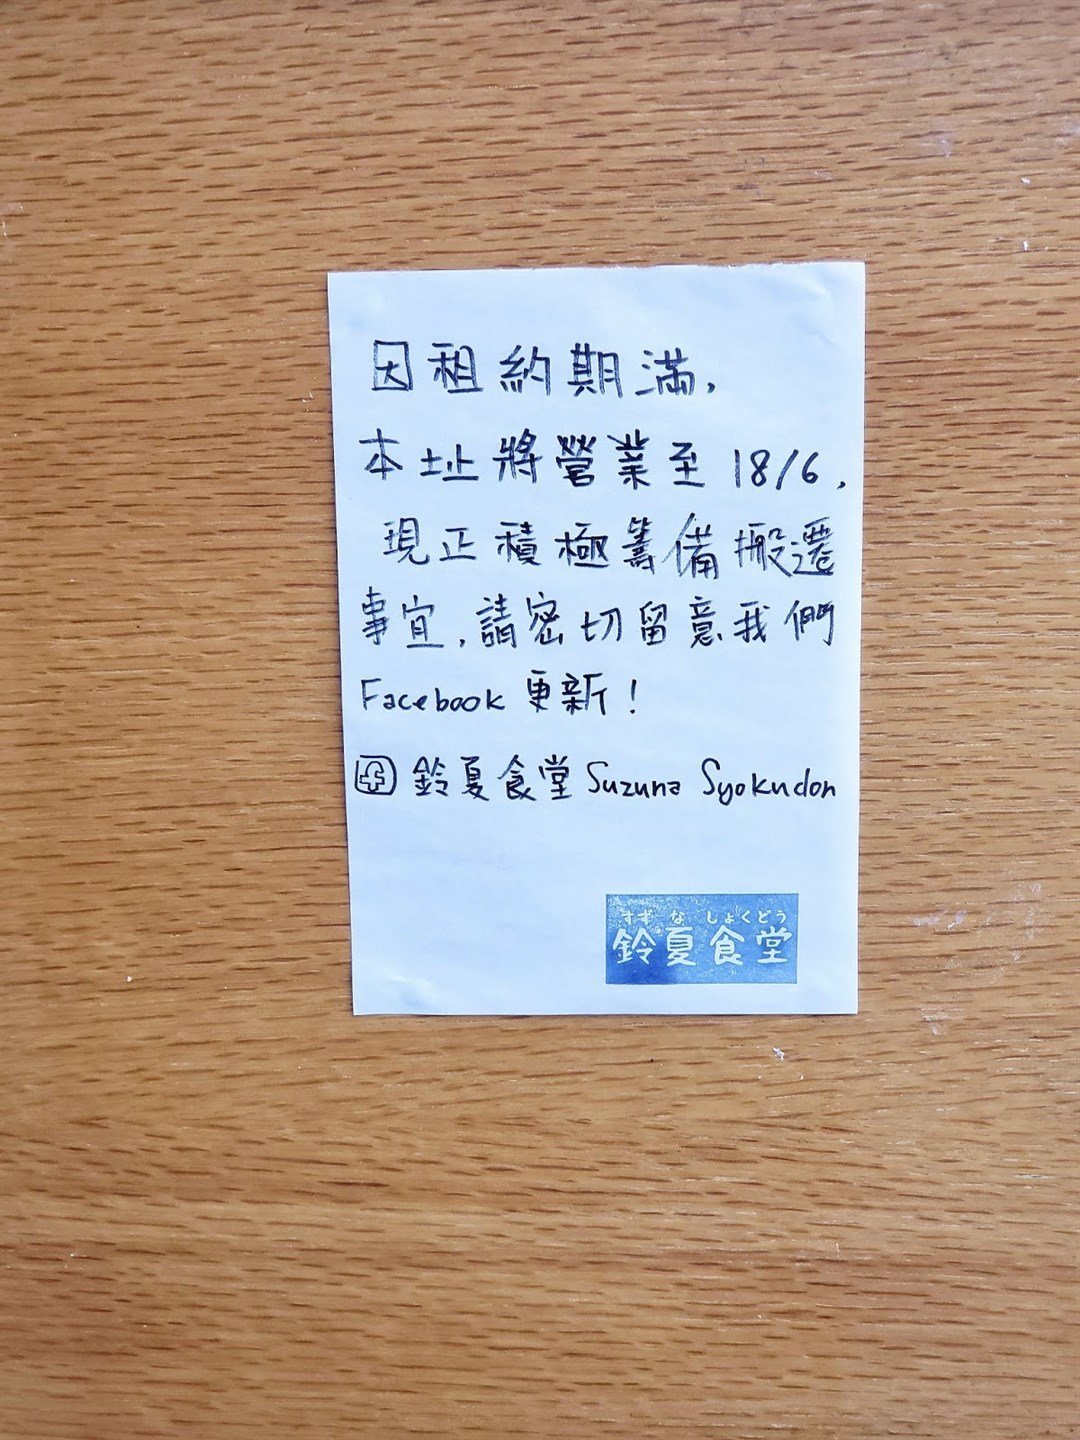 因租約期滿,
本址將營業至 18/6,
現正積極籌備搬遷
事宜,請密切留意我們
Facebook 更新!
鈴夏食堂 Suzuna Syokudon
すずなしょくどう
鈴夏食堂